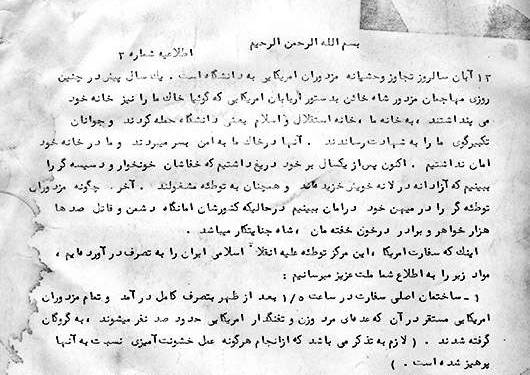 بسم الله الرحمن الرحیم
اطلاعیه شماره ۲
۱۳ آبان سالروز تجاوز وحشیانه مزدوران امریکایی به دانشگاه است . یک سال پیش در چنین
روزی مهاجمان مزدور شاه خائن بدستور اربابان امریکایی که گوئیا خاک ما را نیز خانه خود
می پنداشتند ، به خانه ما ، خانه استقلال و اسلام یعنی دانشگاه حمله کردند و جوانان
تکبیرگوی ما را به شهادت رساندند . آنها در خاک ما به امن بسر میبردند و ما در خانه خود
امان نداشتیم . اکنون پس از یکسال بر خود دریغ داشتیم که خفاشان خونخوار و دسیسه گر را
ببینیم که آزادانه در لانه خویش خزیده‌اند و همچنان به توطئه مشغولند . آخر . چگونه مزدوران
توطئه گر را در میهن خود در امان ببینیم در حالیکه کشورشان امانگاه دشمن و قاتل صد ها
هزار خواهر و برادر در خون خفته مان ، شاه جنایتکار میباشد .
اینک که سفارت امریکا ، این مرکز توطئه علیه انقلاب اسلامی ایران را به تصرف در آورده‌ایم ،
مواد زیر را به اطلاع شما ملت عزیز میرسانیم :
۱ - ساختمان اصلی سفارت در ساعت ۱/۵ بعد از ظهر بتصرف کامل در آمد و تمام مزدوران
امریکایی مستقر در آن که عده‌ای مرد وزن و تفنگدار امریکایی حدود صد نفر میشوند ، به گروگان
گرفته شدند . ( لازم به تذکر می باشد که از انجام هرگونه عمل خشونت آمیزی نسبت به آنها
پرهیز شده است . )